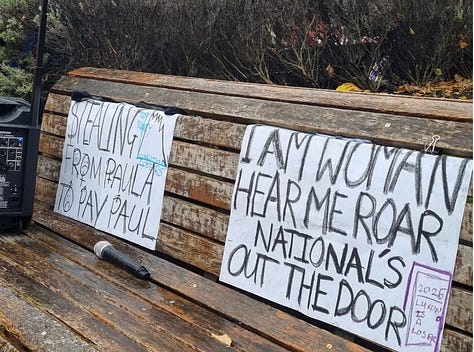 $TEALING
FROM PAULA
TO PAY PAUL
I AM WOMAN
HEAR ME ROAR
NATIONAL'S
OUT THE DOOR
2026
LUXON
IS A
LOSER